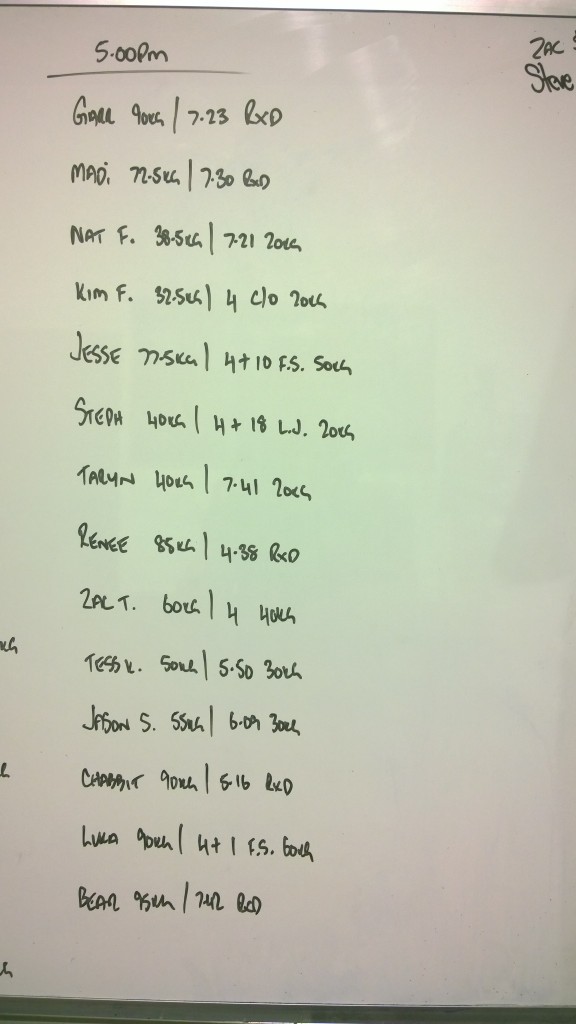 5.00pm
GARR 90KG | 7.23 RxD
MADI 72.5KG | 7.30 RxD
NAT F. 38.5KG | 7.21 20KG
KIM F. 32.5KG | 4 C/O 20KG
JESSE 77.5KG | 4+10 F.S. 50KG
STEPH 40KG | 4+18 L.J. 20KG
TARYN 40KG | 7.41 20KG
RENEE 85KG | 4.38 RxD
ZAC T. 60KG | 4 40KG
TESS K. 50KG | 5.50 30KG
JASON S. 55KG | 6.09 30KG
CHABBIT 90KG | 5.16 RxD
LUKA 90KG | 4+1 F.S. 60KG
BEAR 95KG | 7.42 RxD
ZAC
Steve